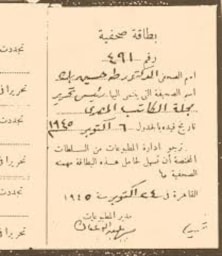 بطاقة صحفية
رقم ٤٩١
اسم الصحفى الدكتور طه حسين بك
اسم الصحيفة التى ينتمى اليها رئيس تحرير
مجلة الكاتب المصرى
تاريخ قيده بالجدول ٦ أكتوبر ١٩٤٥
ترجو ادارة المطبوعات من السلطات
المختصة أن تسهل لحامل هذه البطاقة مهمته
الصحفية ما
القاهرة فى ٢٤ أكتوبر سنة ١٩٤٥
مدير المطبوعات
تجددت
تحريرا فى
تجددت
تحريرا فى
تجددت
تحريرا فى